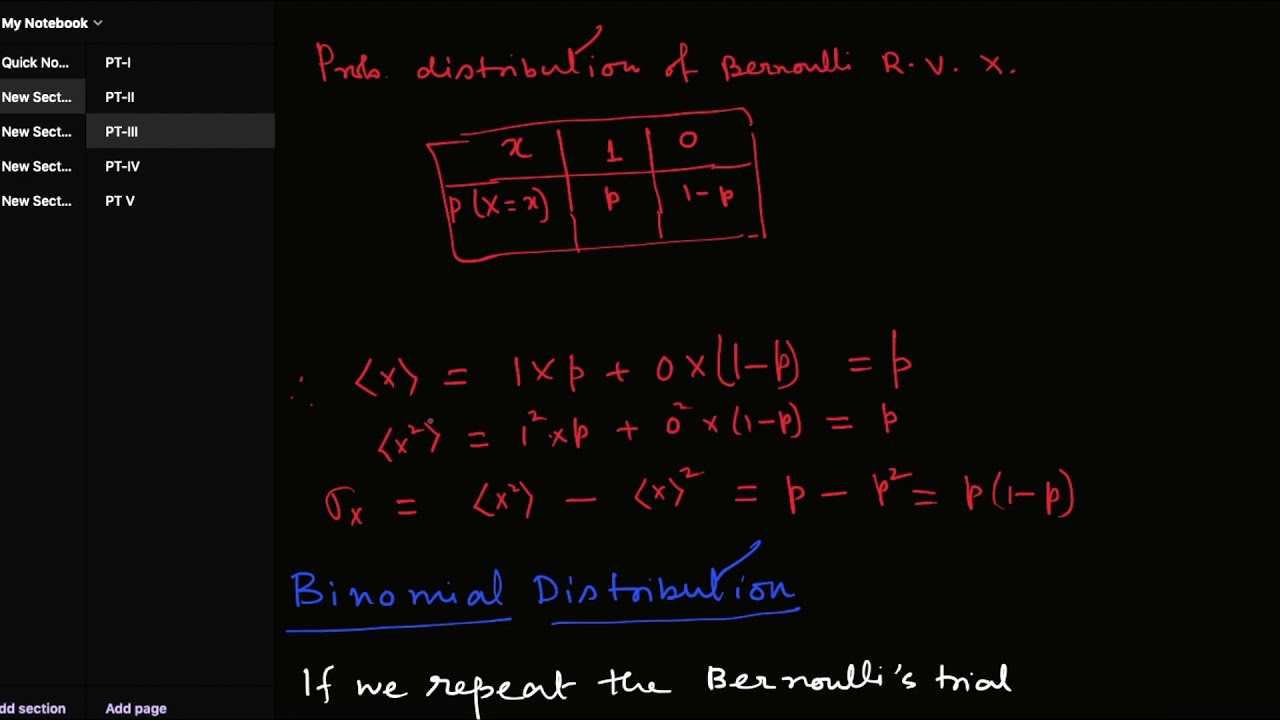 My Notebook
Quick No...
New Sect...
New Sect...
New Sect...
New Sect...
PT-I
PT-II
PT-III
PT-IV
PT V
dd section
Add page
Prob. distribution of Bernoulli R.V. X.
x 1 0
p(X=x) p 1-p
∴ ⟨x⟩ = 1×p + 0×(1-p) = p
⟨x²⟩ = 1²×p + 0²×(1-p) = p
σₓ = ⟨x²⟩ - ⟨x⟩² = p - p² = p(1-p)
Binomial Distribution
If we repeat the Bernoulli's trial